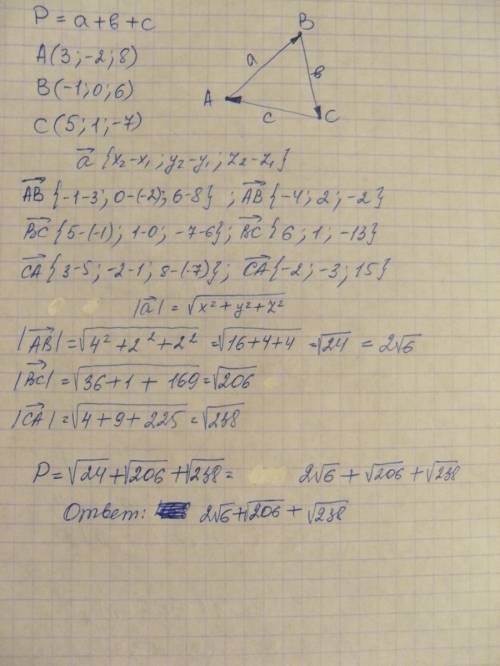 P = a + в + c
A(3; -2; 8)
B(-1; 0; 6)
C(5; 1; -7)
B
a
в
A
c
C
a⃗ {x₂-x₁; y₂-y₁; z₂-z₁}
AB⃗ {-1-3; 0-(-2); 6-8} ; AB⃗ {-4; 2; -2}
BC⃗ {5-(-1); 1-0; -7-6}; BC⃗ {6; 1; -13}
CA⃗ {3-5; -2-1; 8-(-7)}; CA⃗ {-2; -3; 15}
|a⃗| = √(x²+y²+z²)
|AB⃗| = √(4²+2²+2²) = √(16+4+4) = √24 = 2√6
|BC⃗| = √(36+1+169) = √206
|CA⃗| = √(4+9+225) = √238
P = √24 + √206 + √238 = 2√6 + √206 + √238
Ответ: 2√6 + √206 + √238